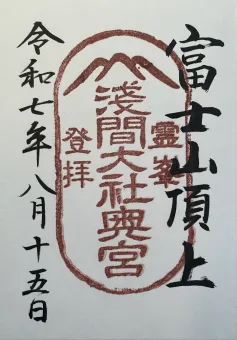 富士山頂上
霊峯
浅間大社奥宮
登拝
令和七年八月十五日